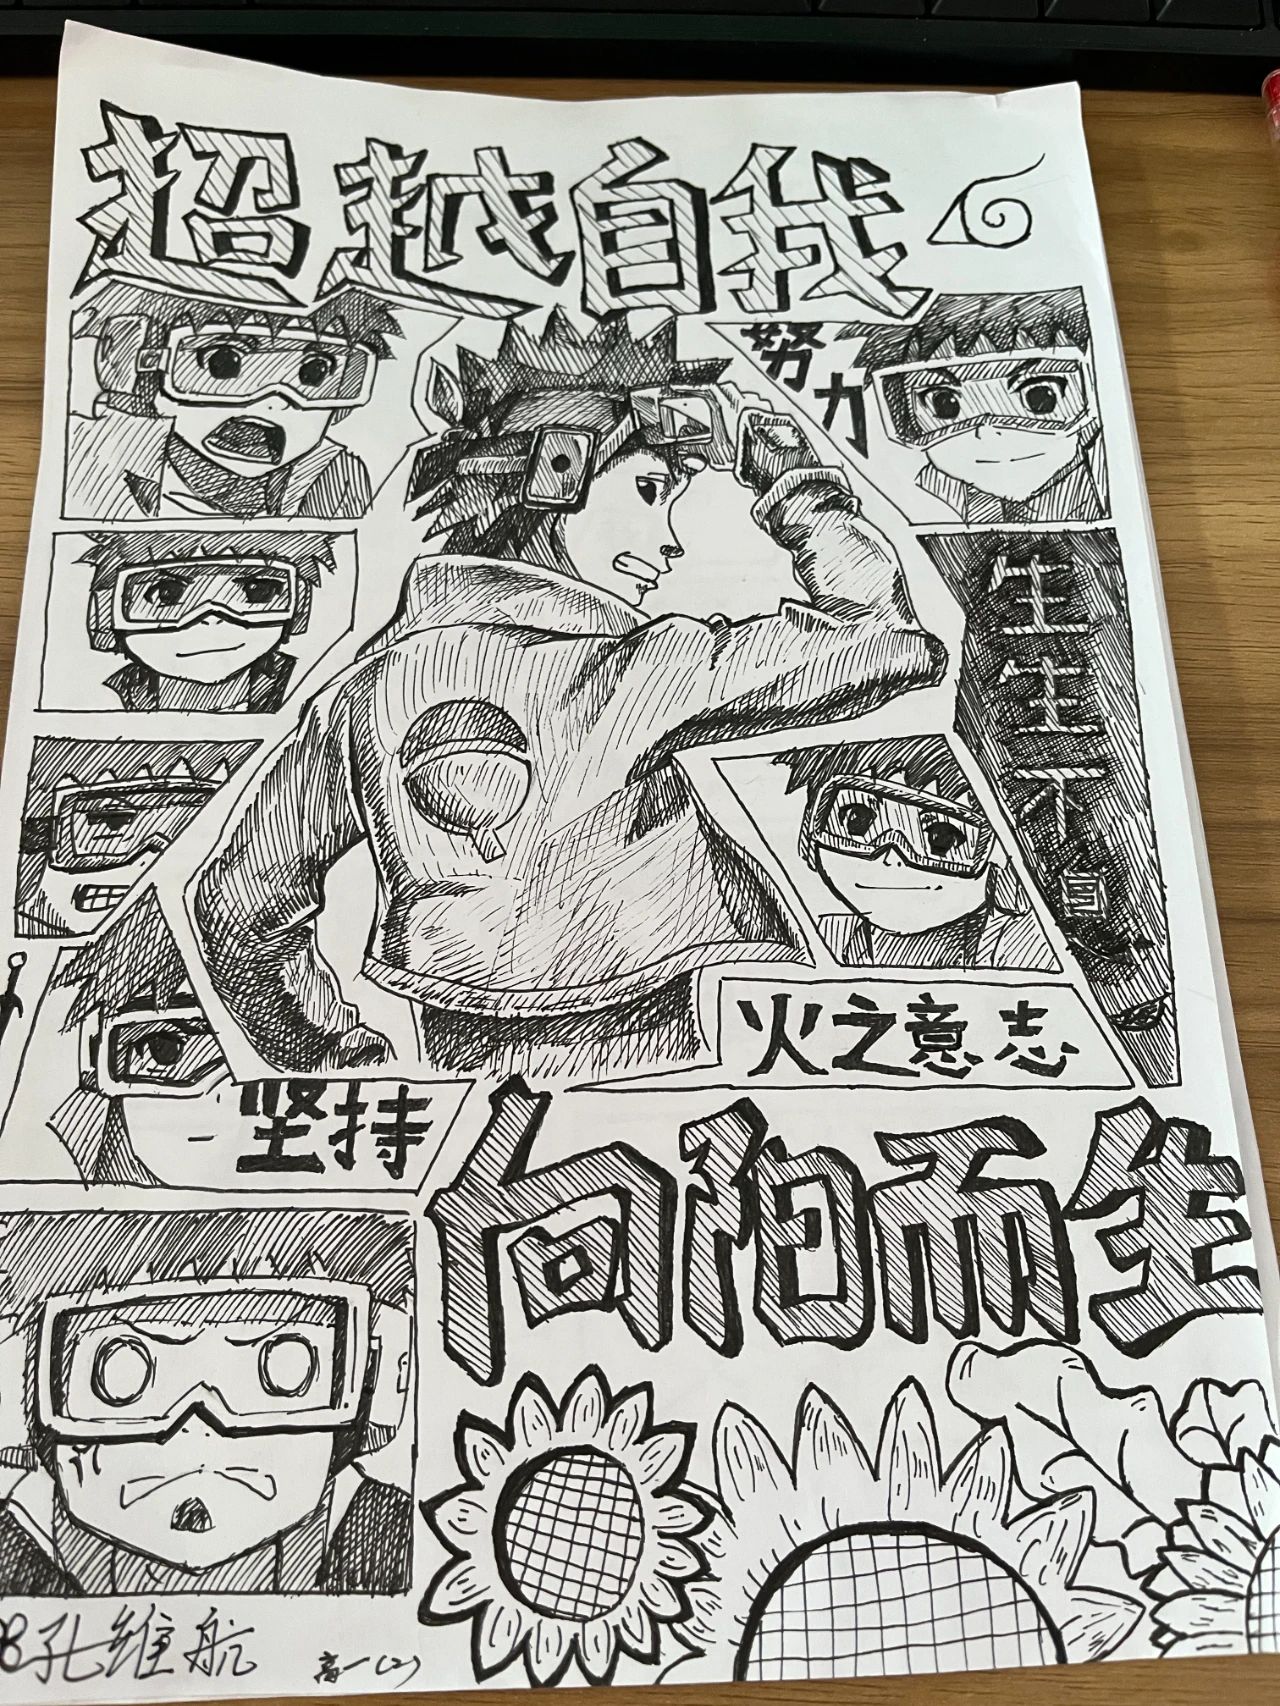 超越自我
努力
生生不息
火之意志
坚持
向阳而生
08孔维航
高一(2)